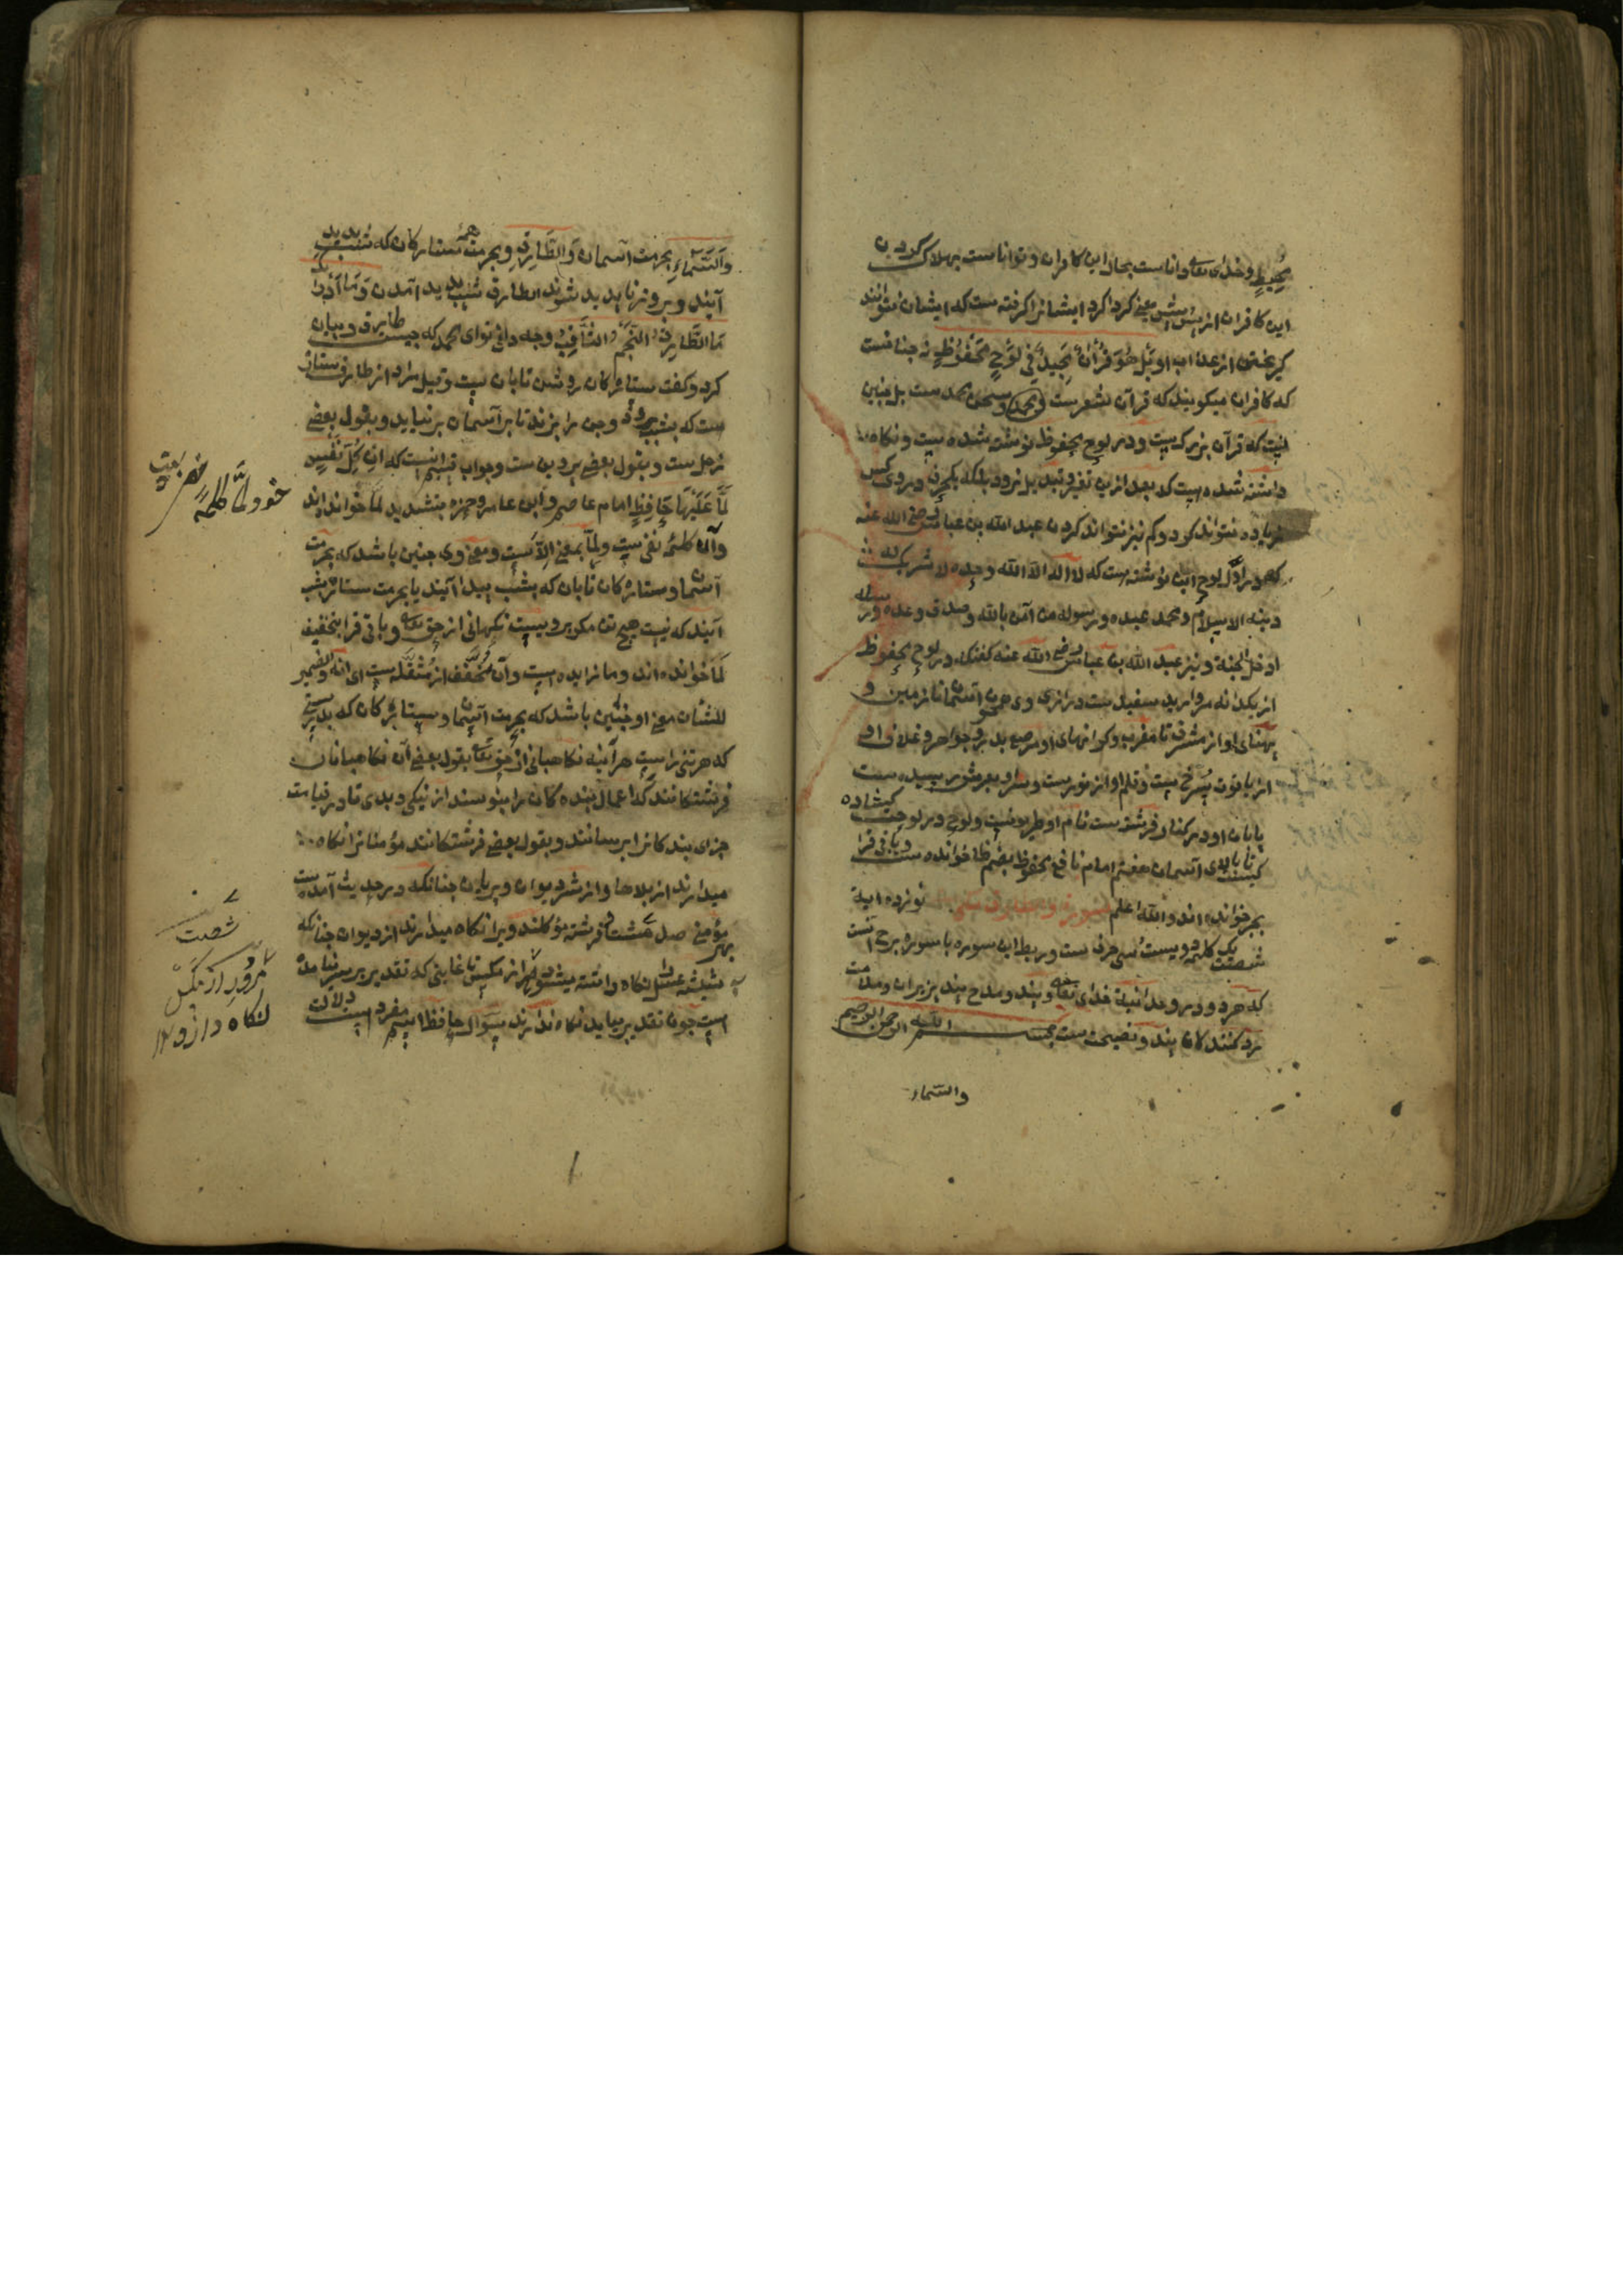 محیط وخدای تعالی داناست بحال این کافران و تواناست بهلاک کردن
این کافران از پس ایشان یعنی کرداکرد ایشانرا کرفته ست که ایشان نتوانند
کریختن از عذاب او بَلْ هُوَ قُرْآنٌ مَجِیدٌ فِی لَوْحٍ مَحْفُوظٍ نه جنانست
که کافران میکویند که قرآن شعرست و سخن محمد ست بل جنین
نیست که قرآن بزرکست ودر لوح محفوظ نوشته شده ست و نکاه
داشته شده ست که بعد ازین تغیر و تبدیل نرود بلکه یکحرف در وی کس
زیاده نتواند کرد و کم نیز نتواند کردن عبد الله بن عباس رضی الله عنه
که در اول لوح این نوشته ست که لا اله الا الله وحده لا شریک له
دینه الاسلام و محمد عبده و رسوله من آمن بالله وصدق وعده و رسله
ادخل الجنة و نیز عبد الله بن عباس رضی الله عنه کفتکه در لوح محفوظ
از یکدانه مروارید سفید ست درازی وی جون آسمان تا زمین و
پهنای او از مشرق تا مغرب و کرانهای او مرصع بدر و جواهر و غلاف او
از یاقوت سرخ ست و قلم او از نورست و سر او بعرش رسیده ست
پایان او در کنار فرشته ست نام او ولوح در لوحت کشاده
تا بالای آسمان هفتم امام نافع محفوظ بضم ظا خوانده ست و باقی قرا
بجر خوانده اند والله اعلم سورة والطارق نوزده ایة
شصت یک کلمه دویست سی حرف ست و ربط این سوره با سوره برج آنست
که هردو در وحدانیة خدای تعالی و پند و مدح پند پذیران و ملامت
رد کنندکان پند و نصیحت ست بسم الله الرحمن الرحیم
والسماء
وَالسَّمَاءِ بحرمت آسمان وَالطَّارِقِ و بحرمت همه ستارکان که شب پدید
آیند و بروز ناپدید شوند الطارق شب پدید آمدن وَمَا أَدْرَاكَ
مَا الطَّارِقُ النَّجْمُ الثَّاقِبُ وجه دانی تو ای محمد که جیست طارق و بیان
کرد و کفت ستارکان روشن تابان ست و قیل مراد از طارق ستاره
ست که بشب برود و جن را بزند تا بر آسمان برنیاید و بقول بعضی
زحل ست و بقول بعضی پروین ست و جواب قسم اینست که إِنْ كُلُّ نَفْسٍ
لَمَّا عَلَيْهَا حَافِظٌ امام عاصم و ابن عامر و حمزه بتشدید لمّا خوانده اند
و اما کلمه نفی ست و لما بمعنی الا ست و معنی وی جنین باشد که بحرمت
آسمان و ستارکان تابان که بشب پیدا آیند یا بحرمت ستاره شب
آیند که نیست هیچ تن مکر بر ویست نکهبانی از حق تعالی و باقی قرا بتخفیف
لما خوانده اند و ما زایده ست و آن مخفف از مثقله ست ای انه والضمیر
للشأن معنی او جنین باشد که بحرمت آسمان و ستارکان که بدرستی
که هر تنی راست هرآینه نکاهبانی از حق تعالی بقول بعضی آن نکاهبانان
فرشتکانند که اعمال بنده کان را بنویسند از نیکی و بدی تا در قیامت
جزای بندکانرا برسانند و بقول بعضی فرشتکانند مؤمنانرا نکاه
میدارند از بلاها و از شر دیوان و پریان جنانکه در حدیث آمده ست
بهر مؤمنی صد شصت فرشته مؤکلند ویرا نکاه میدارند از دیوان جنانکه
شیشه عسل نکاه داشته میشود از مکس تا غایتی که تقدیر بر سر نیامده
است جون تقدیر بیاید نکاه ندارند سوال حافظ اسم مفرد است دلالت
خود لمّا کلمه
شصت
نکاه دارند